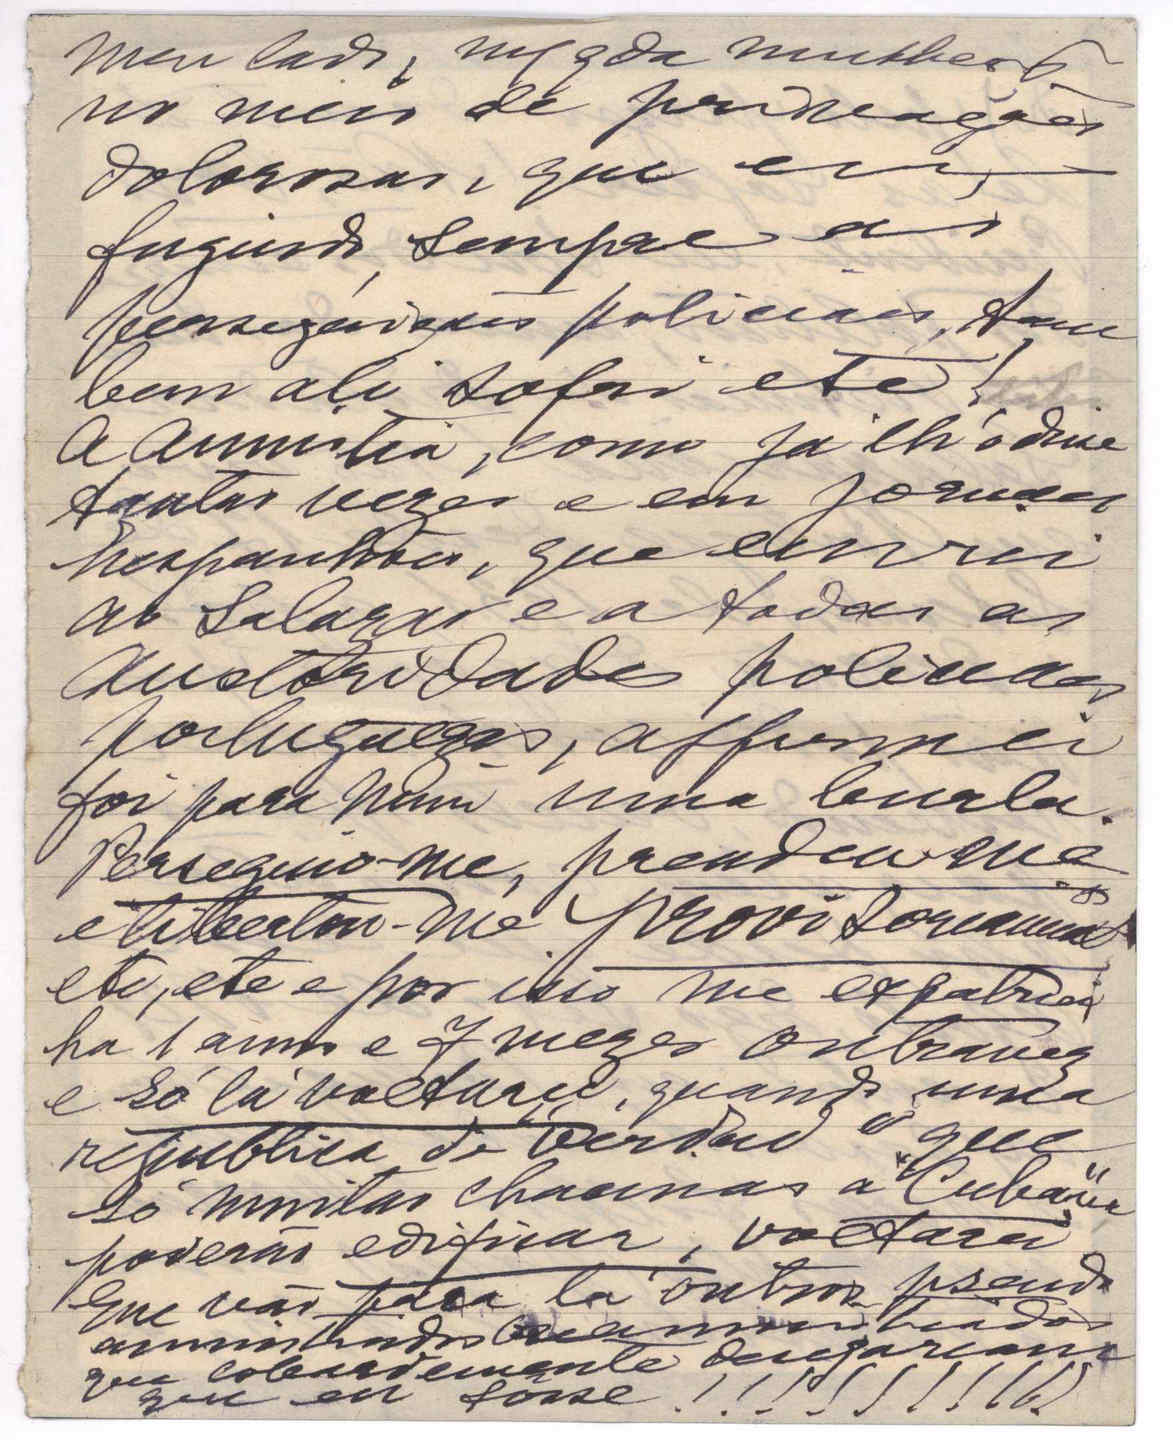 meu lado, 
no meio de privações
dolorosas, que eu,
fugindo, sempre as
perseguições policiais, tam
bem ali sofri etc!
A amnistia, como já lh'o disse
tantas vezes e em jornaes
hespanhoes, que enviei
ao Salazar e a todas as
auctoridades policiaes
portuguezas, affirmei
foi para mim uma burla.
Perseguio-me, prendeu-me
e libertou-me provisoriamente
etc, etc e por isso me expatriei
ha 1 anno e 7 mezes outra vez
e só lá voltarei, quando uma
republica de "verdad" e que
só muitas chacinas á "Cubana"
poderão edificar, voltarei
Que vão para lá outros pseudo
amnistiados
que cobardemente desejariam
que eu fosse !!!!!!!!!!